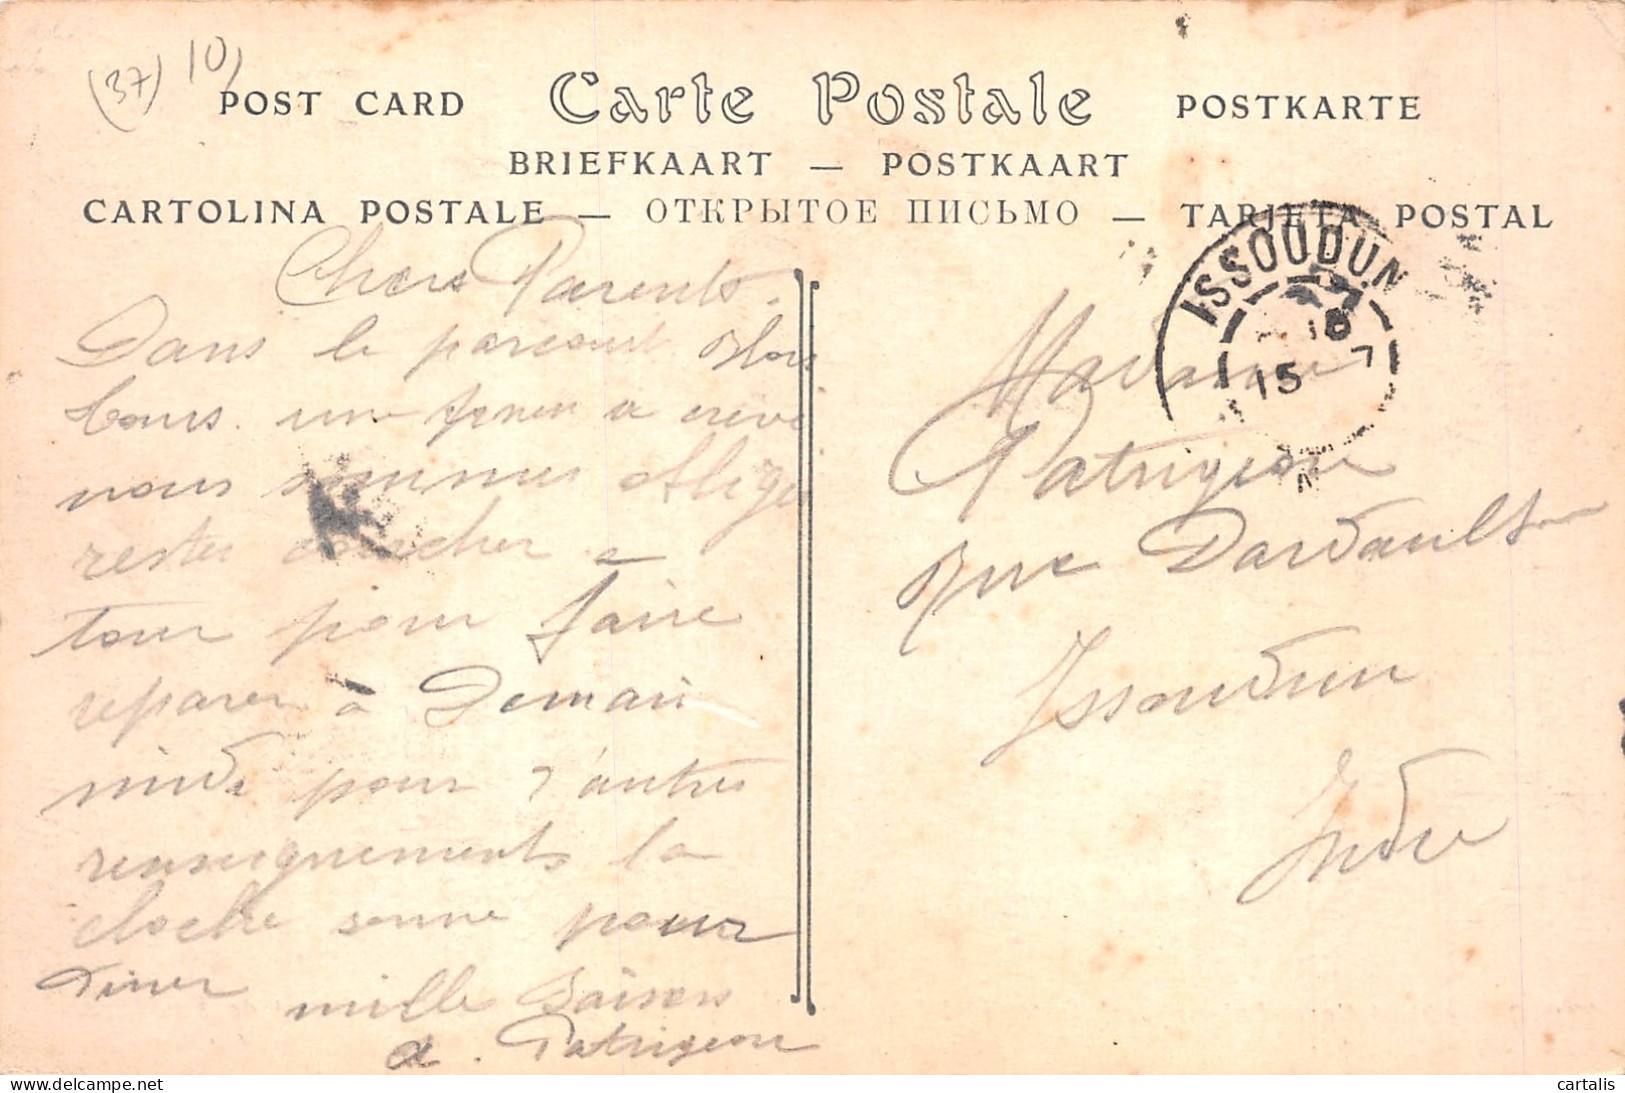 (37) 10)
POST CARD Carte Postale POSTKARTE
BRIEFKAART — POSTKAART
CARTOLINA POSTALE — ОТКРЫТОЕ ПИСЬМО — TARJETA POSTAL
Chers Parents.
Dans le parcours Blois
tours. un a crevé
nous sommes obligé
rester coucher a
tour pour faire
reparer à Demain
midi pour d'autres
renseignements la
cloche sonne pour
diner
mille Baisers
a. Patrigeon
ISSOUDUN
18
15 7
Madame
Patrigeon
Rue Dardault
Issoudun
Indre
delcampe.net
cartalis